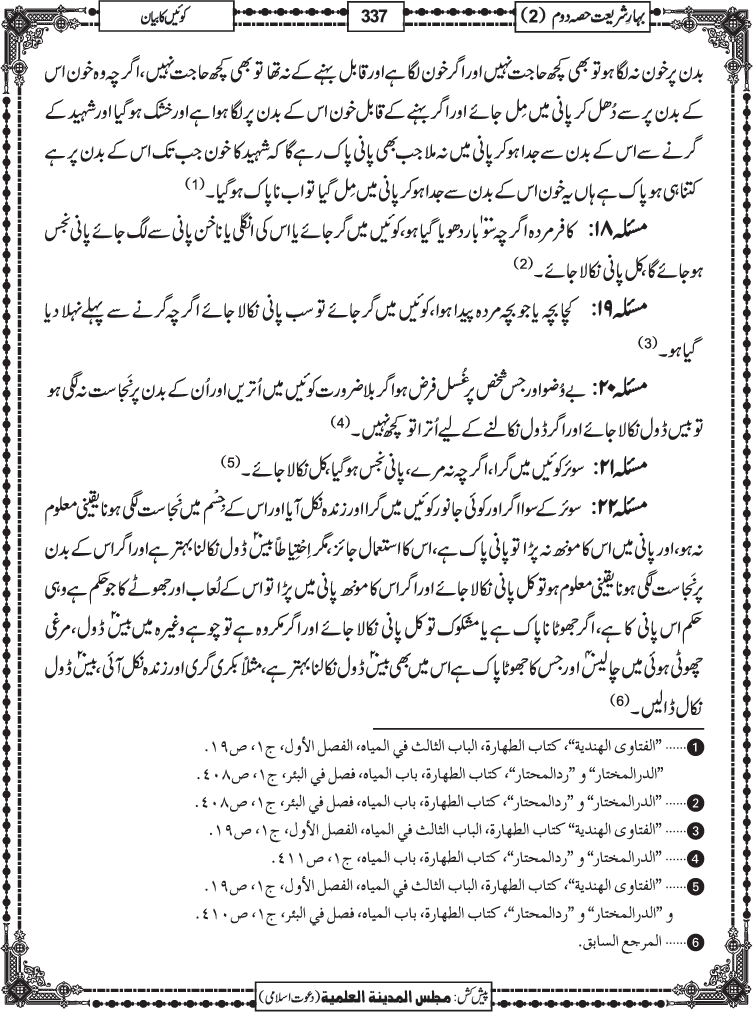 بہارِ شریعت حصہ دوم (2)
337
کوئیں کا بیان
بدن پر خون نہ لگا ہو تو بھی کچھ حاجت نہیں اور اگر خون لگا ہے اور قابل بہنے کے نہ تھا تو بھی کچھ حاجت نہیں، اگرچہ وہ خون اس
کے بدن پر سے دُھل کر پانی میں مِل جائے اور اگر بہنے کے قابل خون اس کے بدن پر لگا ہوا ہے اور خشک ہو گیا اور شہید کے
گرنے سے اس کے بدن سے جدا ہو کر پانی میں نہ ملا جب بھی پانی پاک رہے گا کہ شہید کا خون جب تک اس کے بدن پر ہے
کتنا ہی ہو پاک ہے ہاں یہ خون اس کے بدن سے جدا ہو کر پانی میں مِل گیا تو اب ناپاک ہو گیا۔ (1)
مسئلہ ۱۸: کافر مردہ اگرچہ سو۱۰۰ بار دھویا گیا ہو، کوئیں میں گر جائے یا اس کی انگلی یا ناخن پانی سے لگ جائے پانی نجس
ہو جائے گا، کل پانی نکالا جائے۔ (2)
مسئلہ ۱۹: کچا بچہ یا جو بچہ مردہ پیدا ہوا، کوئیں میں گر جائے تو سب پانی نکالا جائے اگرچہ گرنے سے پہلے نہلا دیا
گیا ہو۔ (3)
مسئلہ ۲۰: بے وُضو اور جس شخص پر غُسل فرض ہو اگر بلا ضرورت کوئیں میں اُتریں اور اُن کے بدن پر نَجاست نہ لگی ہو
تو بیس ڈول نکالا جائے اور اگر ڈول نکالنے کے لیے اُترا تو کچھ نہیں۔ (4)
مسئلہ ۲۱: سوئر کوئیں میں گرا، اگرچہ نہ مرے، پانی نجس ہو گیا، کل نکالا جائے۔ (5)
مسئلہ ۲۲: سوئر کے سوا اگر اور کوئی جانور کوئیں میں گرا اور زندہ نکل آیا اور اس کے جِسْم میں نَجاست لگی ہونا یقینی معلوم
نہ ہو، اور پانی میں اس کا مونھ نہ پڑا تو پانی پاک ہے، اس کا استعمال جائز، مگر اِحْتِیاطاً بیس۲۰ ڈول نکالنا بہتر ہے اور اگر اس کے بدن
پر نَجاست لگی ہونا یقینی معلوم ہو تو کل پانی نکالا جائے اور اگر اس کا مونھ پانی میں پڑا تو اس کے لُعاب اور جھوٹے کا جو حکم ہے وہی
حکم اس پانی کا ہے، اگر جھوٹا ناپاک ہے یا مشکوک تو کل پانی نکالا جائے اور اگر مکروہ ہے تو چوہے وغیرہ میں بیس۲۰ ڈول، مرغی
چھوٹی ہوئی میں چالیس۴۰ اور جس کا جھوٹا پاک ہے اس میں بھی بیس۲۰ ڈول نکالنا بہتر ہے، مثلاً بکری گری اور زندہ نکل آئی، بیس۲۰ ڈول
نکال ڈالیں۔ (6)
1 ...... ”الفتاوی الهندية“، كتاب الطهارة، الباب الثالث في المياه، الفصل الأول، ج١، ص١٩.
”الدرالمختار“ و ”ردالمحتار“، كتاب الطهارة، باب المياه، فصل في البئر، ج١، ص٤٠٨.
2 ...... ”الدرالمختار“ و ”ردالمحتار“، كتاب الطهارة، باب المياه، فصل في البئر، ج١، ص٤٠٨.
3 ...... ”الفتاوی الهندية“ كتاب الطهارة، الباب الثالث في المياه، الفصل الأول، ج١، ص١٩.
4 ...... ”الدرالمختار“ و ”ردالمحتار“، كتاب الطهارة، باب المياه، ج١، ص٤١١.
5 ...... ”الفتاوی الهندية“، كتاب الطهارة، الباب الثالث في المياه، الفصل الأول، ج١، ص١٩.
و ”الدرالمختار“ و ”ردالمحتار“، كتاب الطهارة، باب المياه، فصل في البئر، ج١، ص٤١٠.
6 ...... المرجع السابق.
پیش کش: مجلس المدينة العلمية (دعوت اسلامی)